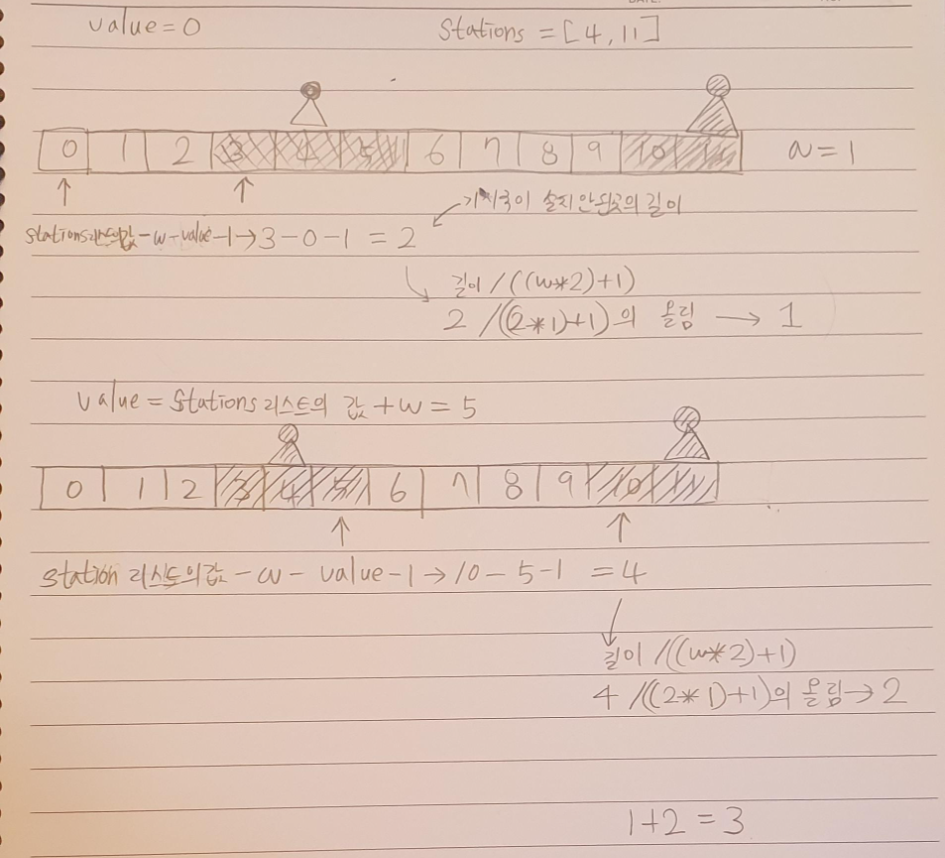 value = 0
Stations = [4, 11]
0 1 2 3 4 5 6 7 8 9 10 11
w = 1
기지국이 설치 안된곳의 길이
stations리스트의값 - w - value - 1 → 3 - 0 - 1 = 2
길이 / ((w*2)+1)
2 / ((2*1)+1)의 올림 → 1
value = Stations 리스트의 값 + w = 5
0 1 2 3 4 5 6 7 8 9 10 11
station 리스트의값 - w - value - 1 → 10 - 5 - 1 = 4
길이 / ((w*2)+1)
4 / ((2*1)+1)의 올림 → 2
1+2 = 3